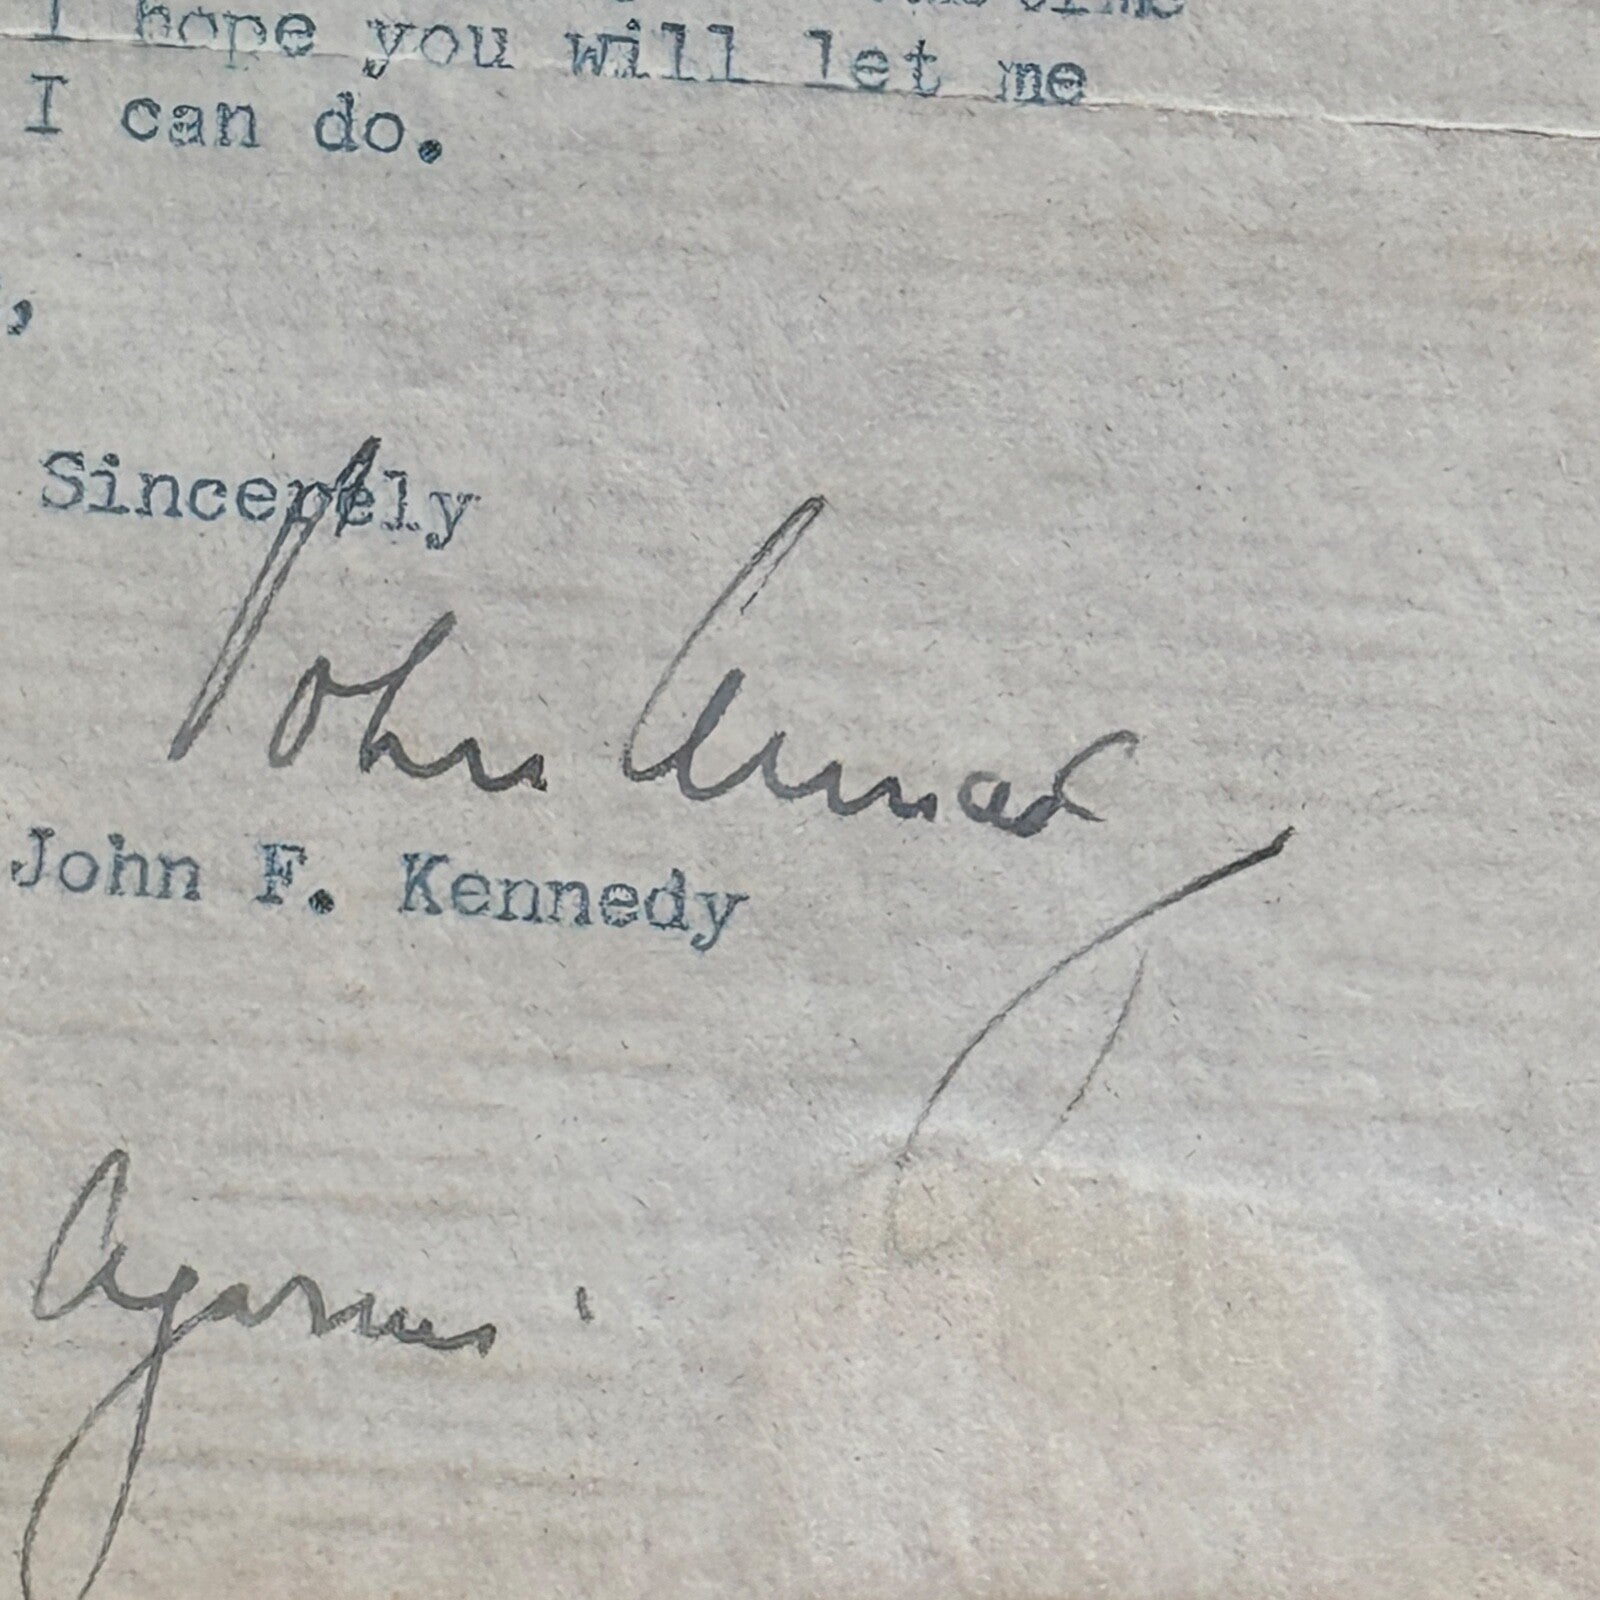 I hope you will let me
I can do.
,
Sincerely
John
John F. Kennedy